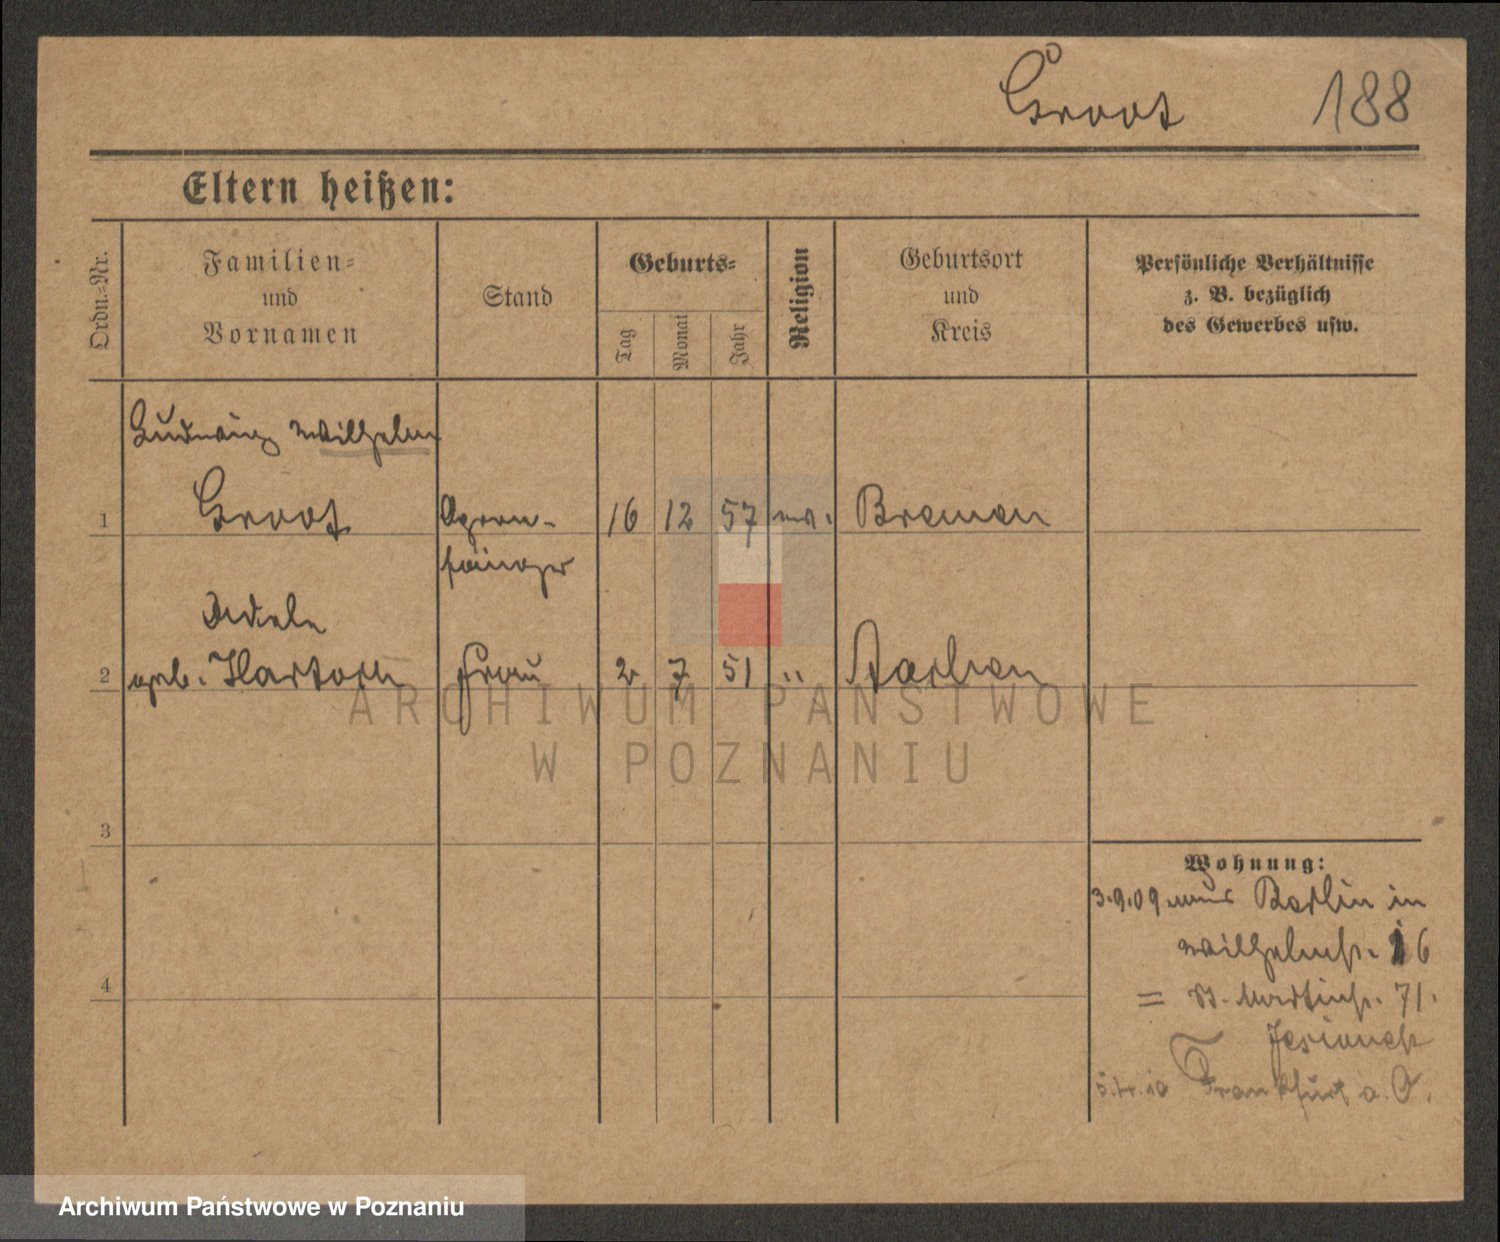 Groot 188
Eltern heißen:
Ordn.-Nr.
Familien-
und
Vornamen
Stand
Geburts-
Tag
Monat
Jahr
Religion
Geburtsort
und
Kreis
Persönliche Verhältnisse
z. B. bezüglich
des Gewerbes usw.
Ludwig Wilhelm
1 Groot Opern- 16 12 57 ev. Bremen
sänger
Adele
2 geb. Hartoch Frau 2 7 51 " Aachen
ARCHIWUM PAŃSTWOWE
W POZNANIU
3
Wohnung:
3.9.09 aus Berlin in
Wilhelmstr. 16
4
= St. Martinstr. 71.
Frankfurt a. O.
Archiwum Państwowe w Poznaniu